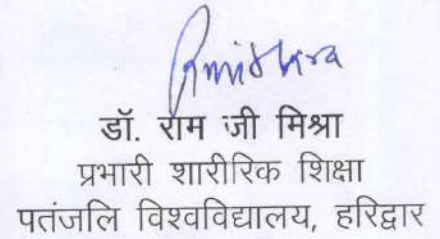 डॉ. राम जी मिश्रा
प्रभारी शारीरिक शिक्षा
पतंजलि विश्वविद्यालय, हरिद्वार